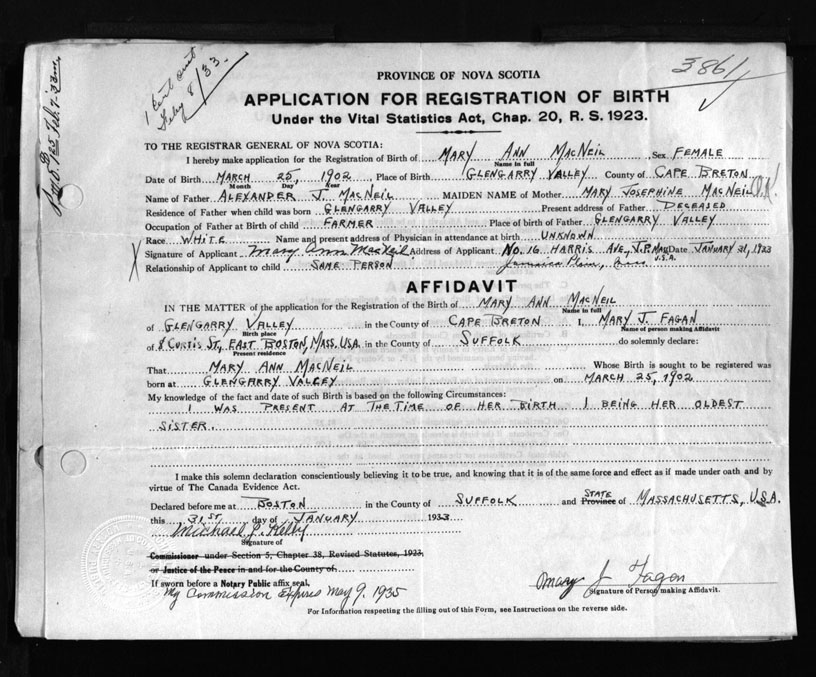 1 Cert out
Feby 8/33.
3861
PROVINCE OF NOVA SCOTIA
APPLICATION FOR REGISTRATION OF BIRTH
Under the Vital Statistics Act, Chap. 20, R. S. 1923.
TO THE REGISTRAR GENERAL OF NOVA SCOTIA:
I hereby make application for the Registration of Birth of MARY ANN MACNEIL, Sex FEMALE
Name in full
Date of Birth MARCH 25, 1902, Place of Birth GLENGARRY VALLEY County of CAPE BRETON
Month Day Year
Name of Father ALEXANDER J. MACNEIL MAIDEN NAME of Mother MARY JOSEPHINE MACNEIL
Residence of Father when child was born GLENGARRY VALLEY Present address of Father DECEASED
Occupation of Father at Birth of child FARMER Place of birth of Father GLENGARRY VALLEY
Race WHITE Name and present address of Physician in attendance at birth UNKNOWN
Signature of Applicant Mary Ann MacNeil Address of Applicant No. 16 HARRIS AVE, J.P. Date JANUARY 31, 1933
Relationship of Applicant to child SAME PERSON Jamaica Plain, Mass U.S.A.
AFFIDAVIT
IN THE MATTER of the application for the Registration of the Birth of MARY ANN MACNEIL
Name in full
of GLENGARRY VALLEY in the County of CAPE BRETON I, MARY J. FAGAN
Birth place Name of person making Affidavit
of 8 CURTIS ST, EAST BOSTON, MASS. USA. in the County of SUFFOLK do solemnly declare:
Present residence
That MARY ANN MACNEIL Whose Birth is sought to be registered was
born at GLENGARRY VALLEY on MARCH 25, 1902
My knowledge of the fact and date of such Birth is based on the following Circumstances:
I WAS PRESENT AT THE TIME OF HER BIRTH I BEING HER OLDEST
SISTER.
I make this solemn declaration conscientiously believing it to be true, and knowing that it is of the same force and effect as if made under oath and by
virtue of The Canada Evidence Act.
Declared before me at BOSTON in the County of SUFFOLK and STATE Province of MASSACHUSETTS, U.S.A.
this 31ST day of JANUARY 1933
Michael J. Kelly
Signature of
Commissioner under Section 5, Chapter 38, Revised Statutes, 1923,
or Justice of the Peace in and for the County of
If sworn before a Notary Public affix seal.
My Commission Expires May 9, 1935
Mary J Fagan
Signature of Person making Affidavit.
For Information respecting the filling out of this Form, see Instructions on the reverse side.